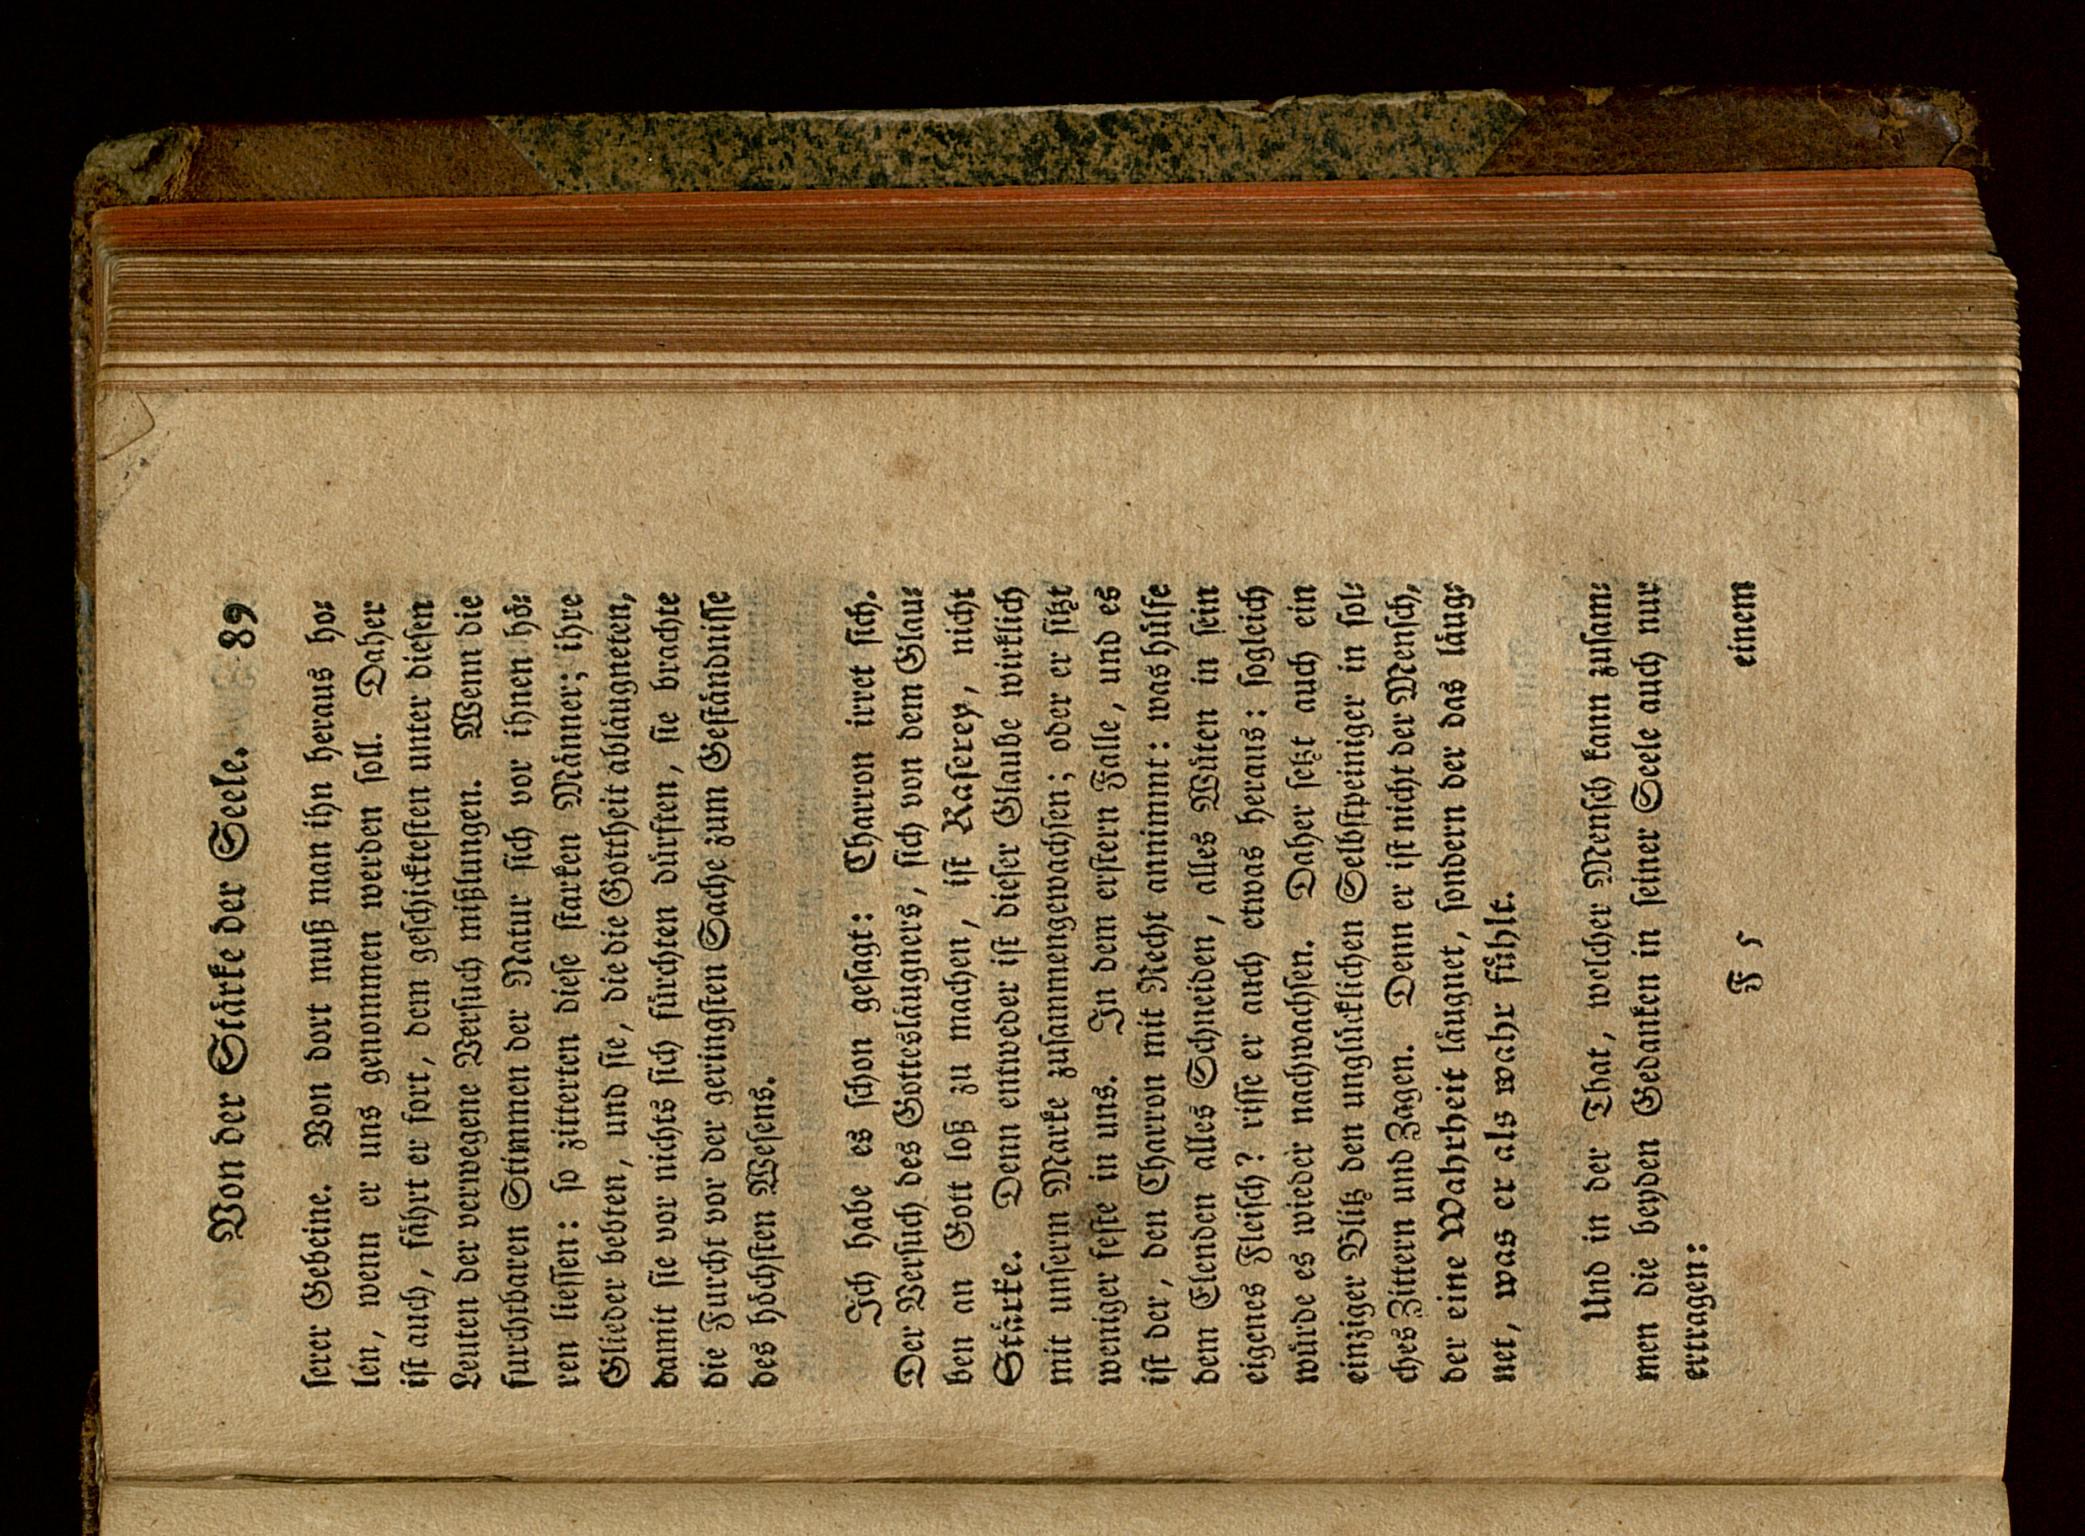 Von der Stärke der Seele. 89
ſerer Gebeine. Von dort muß man ihn heraus ho⸗
len, wenn er uns genommen werden ſoll. Daher
iſt auch, fährt er fort, dem geſchickteſten unter dieſen
Leuten der verwegene Verſuch mißlungen. Wenn die
furchtbaren Stimmen der Natur ſich vor ihnen hö⸗
ren lieſſen: ſo zitterten dieſe ſtarken Männer; ihre
Glieder bebten, und ſie, die die Gottheit abläugneten,
damit ſie vor nichts ſich fürchten dürften, ſie brachte
die Furcht vor der geringſten Sache zum Geſtändniſſe
des höchſten Weſens.
Ich habe es ſchon geſagt: Charron irret ſich.
Der Verſuch des Gottesläugners, ſich von dem Glau⸗
ben an Gott loß zu machen, iſt Raſerey, nicht
Stärke. Denn entweder iſt dieſer Glaube wirklich
mit unſerm Marke zuſammengewachſen; oder er ſitzt
weniger feſte in uns. In dem erſtern Falle, und es
iſt der, den Charron mit Recht annimmt: was hülfe
dem Elenden alles Schneiden, alles Wüten in ſein
eigenes Fleiſch? riſſe er auch etwas heraus: ſogleich
würde es wieder nachwachſen. Daher ſetzt auch ein
einziger Blitz den unglücklichen Selbſtpeiniger in ſol⸗
ches Zittern und Zagen. Denn er iſt nicht der Menſch,
der eine Wahrheit läugnet, ſondern der das läug⸗
net, was er als wahr fühlt.
Und in der That, welcher Menſch kann zuſam⸗
men die beyden Gedanken in ſeiner Seele auch nur
ertragen:
F 5 einem